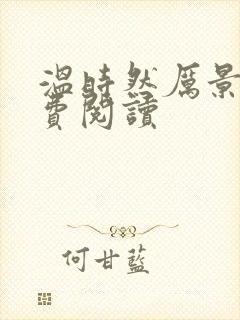 温時然厲景
費閱讀
何甘藍